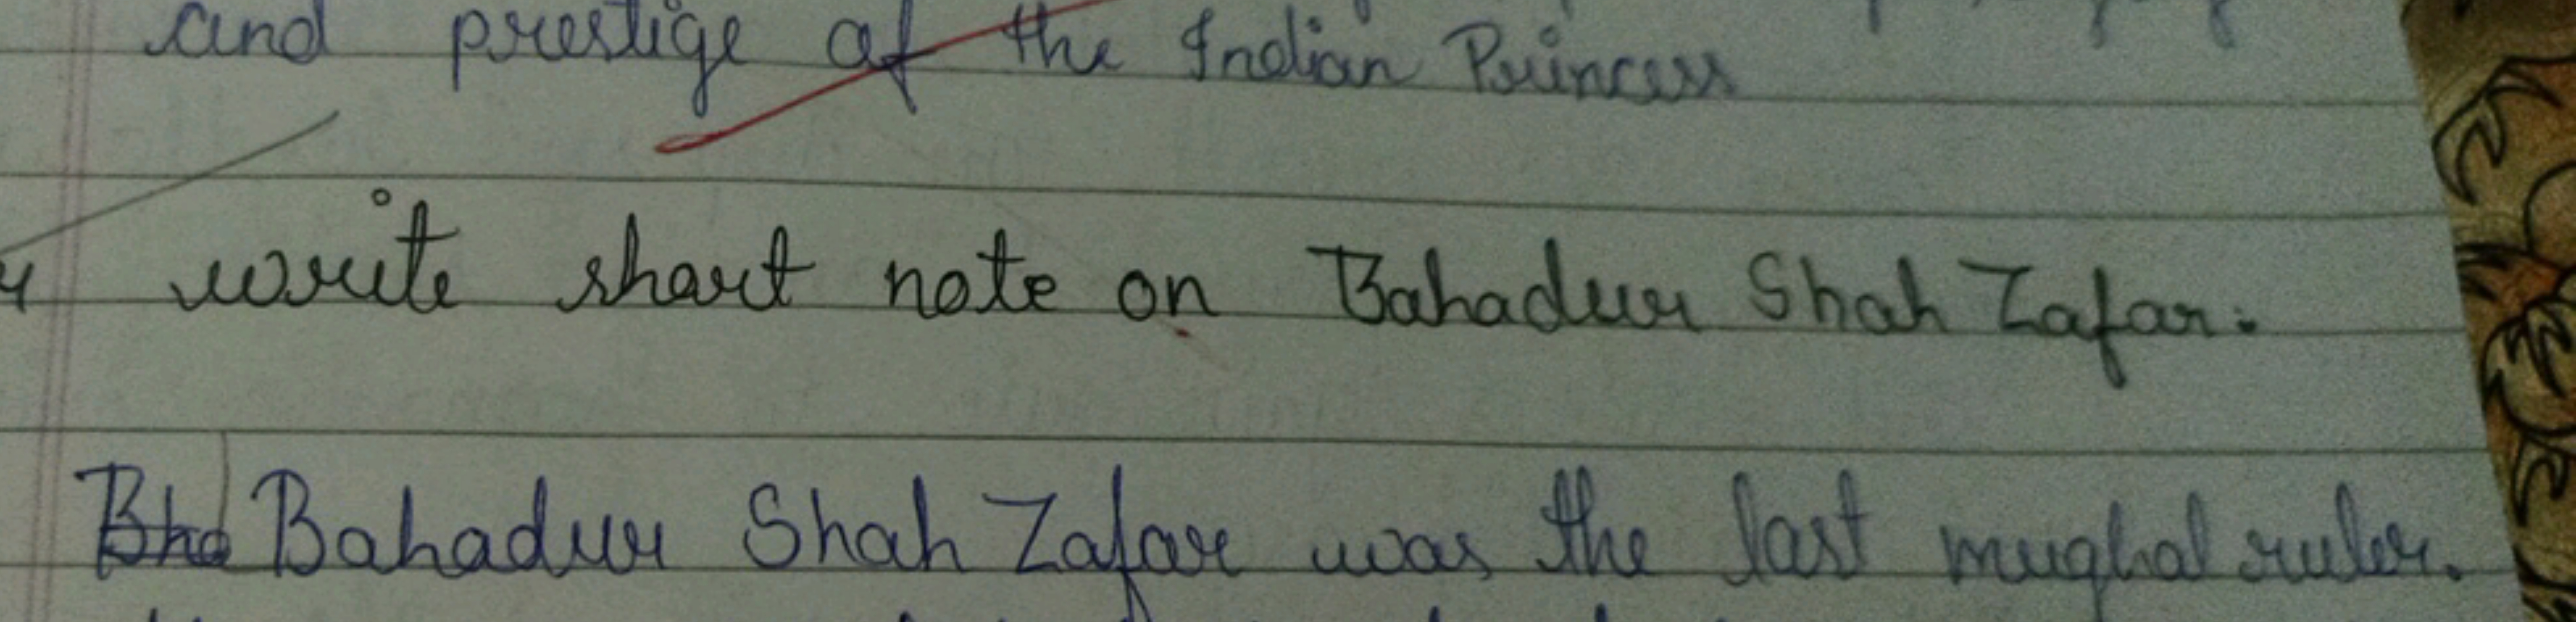 and prestige of the Indian Princess
4 write short note on Bahadur Shah Zafar.
Bha Bahadur Shah Zafar was the last mughal ruler.